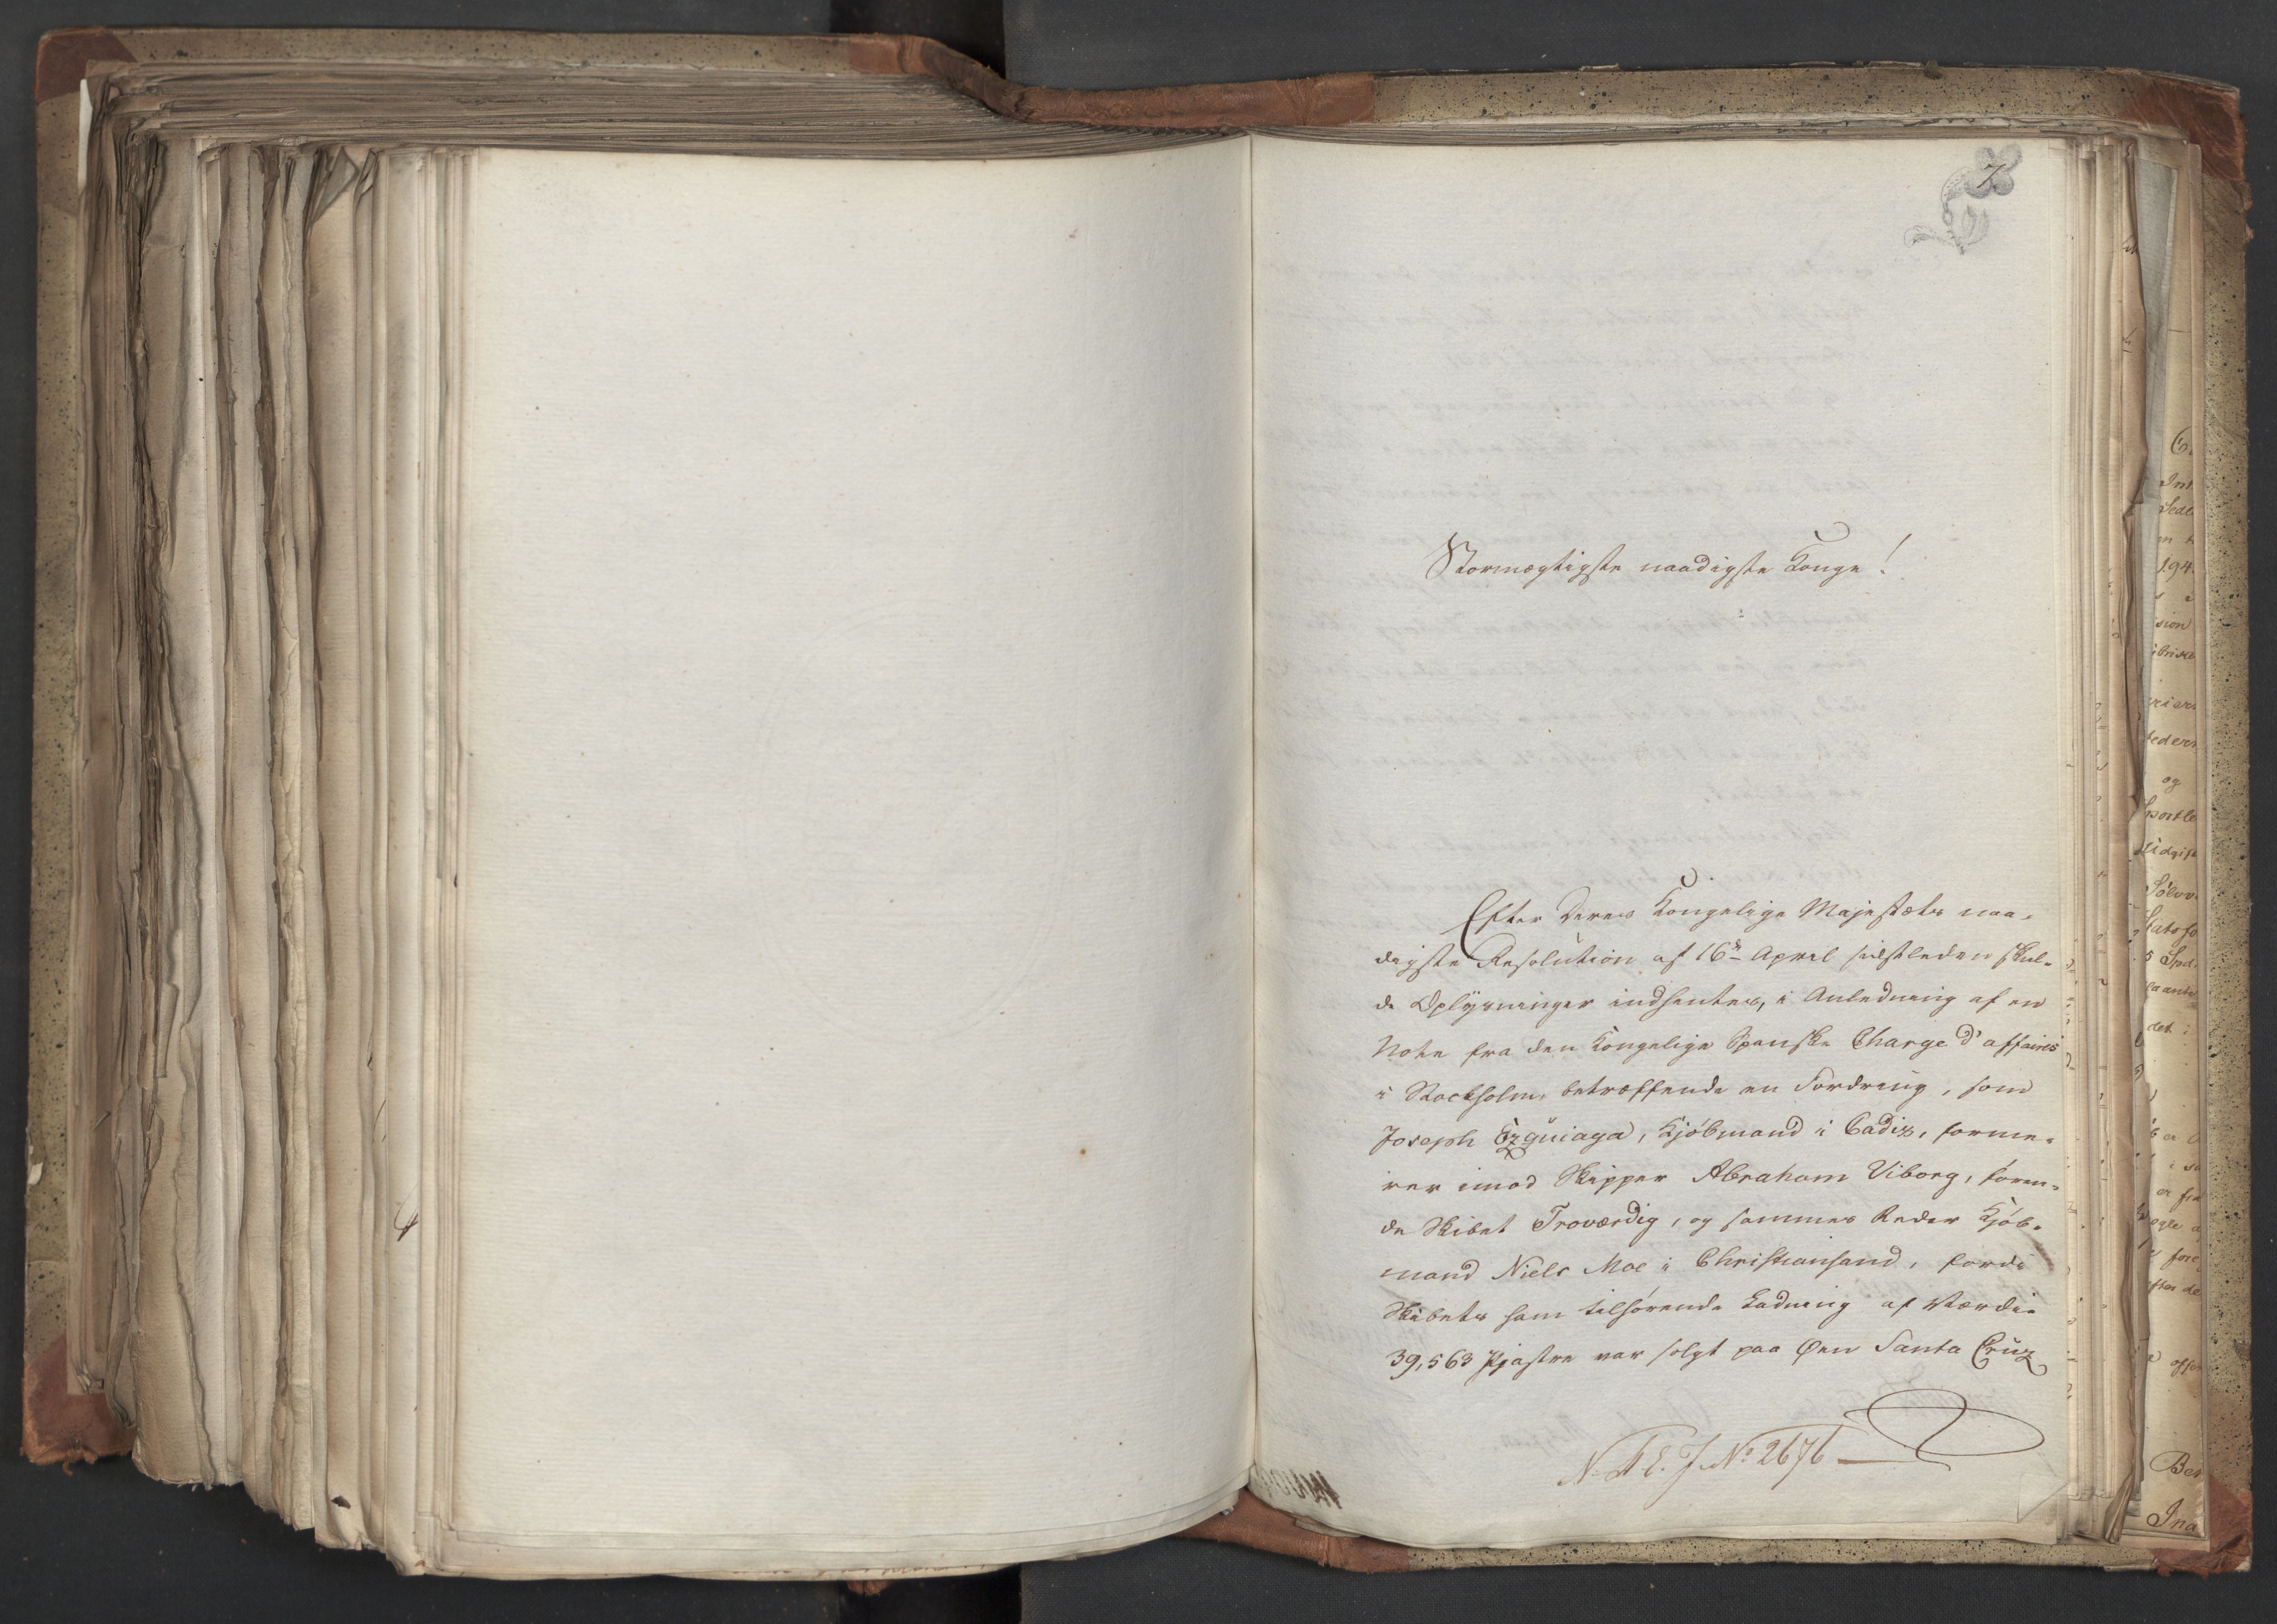 7
Stormægtigste naadigste Konge!
Efter Deres Kongelige Majestæts naa-
digste Resolution af 16de April sidstleden skul-
de Oplysninger indhentes, i Anledning af en
Note fra den Kongelige Spanske Charge d'affaires
i Stockholm, betræffende en Fordring, som
Joseph Ezguiaga, Kjöbmand i Cadix, forme-
rer imod Skipper Abraham Viborg, føren-
de Skibet Troværdig, og sammes Reder Kjøb-
mand Niels Moe i Christiansand, fordi
Skibets ham tilhørende Ladning af Værdie
39,563 Pjastre var solgt paa Øen Santa Cruz
N. A. E. J. No 2676